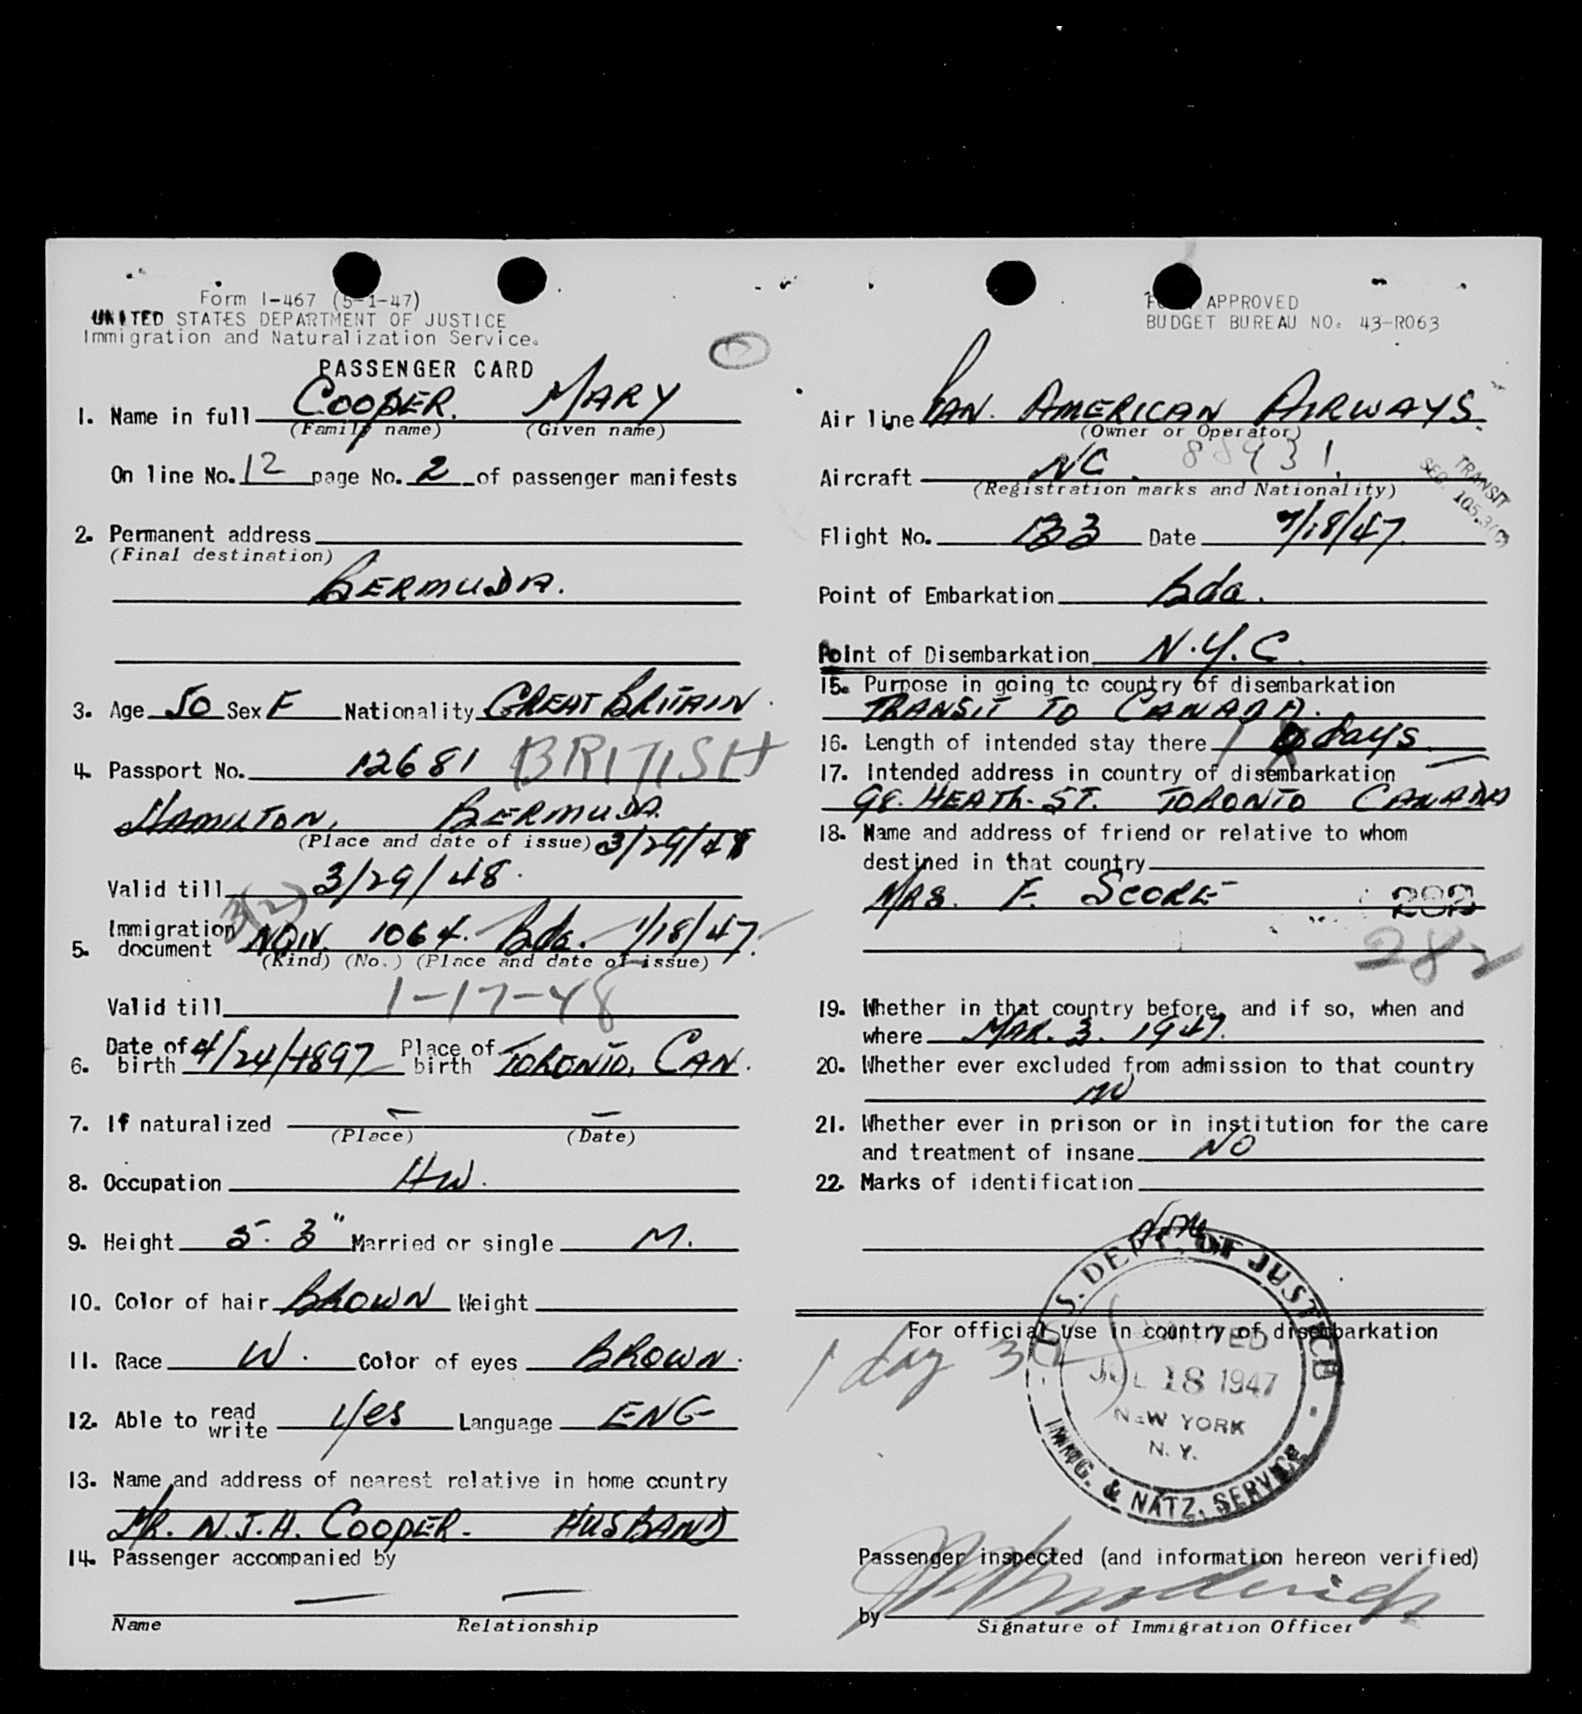 Form I-467 (5-1-47)
UNITED STATES DEPARTMENT OF JUSTICE
Immigration and Naturalization Service.
PASSENGER CARD
1. Name in full COOPER. MARY
(Family name) (Given name)
On line No. 12 page No. 2 of passenger manifests
2. Permanent address
(Final destination)
BERMUDA.
3. Age 50 Sex F Nationality GREAT BRITAIN
4. Passport No. 12681 BRITISH
HAMILTON, BERMUDA.
(Place and date of issue) 3/29/48
Valid till 3/29/48.
3(2)
5. Immigration document NQIV. 1064. Bda. 1/18/47.
(Kind) (No.) (Place and date of issue)
Valid till 1-17-48
6. Date of birth 4/24/1897 Place of birth TORONTO, CAN.
7. If naturalized — —
(Place) (Date)
8. Occupation HW.
9. Height 5. 3" Married or single M.
10. Color of hair BROWN Weight
11. Race W. Color of eyes BROWN.
12. Able to read write Yes Language ENG
13. Name and address of nearest relative in home country
MR. N.J.H. COOPER- HUSBAND
14. Passenger accompanied by
— —
Name Relationship
APPROVED
BUDGET BUREAU NO. 43-R063
Air line PAN. AMERICAN AIRWAYS.
(Owner or Operator)
Aircraft NC. 88931.
(Registration marks and Nationality)
TRANSIT
SEC. 105.3
Flight No. 133 Date 7/18/47.
Point of Embarkation Bda.
Point of Disembarkation N.Y.C.
15. Purpose in going to country of disembarkation
TRANSIT TO CANADA.
16. Length of intended stay there 1 days
17. Intended address in country of disembarkation
98. HEATH. ST. TORONTO CANADA
18. Name and address of friend or relative to whom
destined in that country
MRS. F. SCORE
282
19. Whether in that country before, and if so, when and
where MAR. 3. 1947.
20. Whether ever excluded from admission to that country
NO
21. Whether ever in prison or in institution for the care
and treatment of insane NO
22. Marks of identification
For official use in country of disembarkation
1 day 3(2)
U.S. DEPT. OF JUSTICE
ADMITTED
JUL 18 1947
NEW YORK
N.Y.
IMMIG. & NATZ. SERVICE
Passenger inspected (and information hereon verified)
by
Signature of Immigration Officer